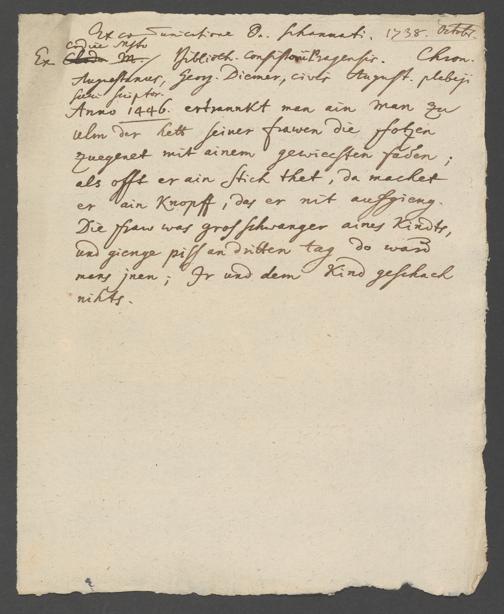 Ex co̅municatione D. Schannati. 1738. Octobr.
codice msto
Ex Biblioth. Consistorii Pragensis. Chron.
Augustanus, Georg. Diemer, civis August. plebeji
sui scriptor.
Anno 1446. ertrannkt man ain man zu
Ulm der hett seiner frawen die fotzen
zuegenet mit ainem gewiechsten faden;
als offt er ain stich thet, da machet
er ain Knopff, das er nit auffgieng.
Die fraw was gros schwanger aines Kindts,
und gienge piss an dritten tag do ward
mens jnen; Ir und dem Kind geschach
nichts.